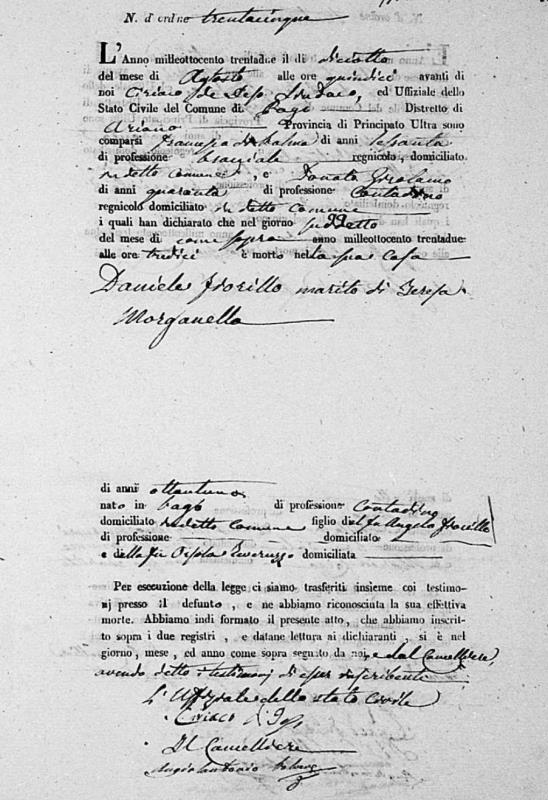 N. d'ordine trentacinque
L'Anno milleottocento trentadue il dì diciotto
del mese di Agosto alle ore quindici avanti di
noi Ciriaco de Sindaco, ed Uffiziale dello
Stato Civile del Comune di Pago Distretto di
Ariano Provincia di Principato Ultra sono
comparsi di anni sessanta
di professione bracciale regnicolo, domiciliato
in detto comune, e Donato Girolamo
di anni quaranta di professione Contadino
regnicolo domiciliato in detto comune
i quali han dichiarato che nel giorno suddetto
del mese di come sopra anno milleottocento trentadue
alle ore tredici è morto nella sua casa
Daniele Fiorillo marito di Teresa
Morganella
di anni ottantuno
nato in Pago di professione Contadino
domiciliato in detto comune figlio del fu Angelo Fiorillo
di professione domiciliato
e della fu domiciliata
Per esecuzione della legge ci siamo trasferiti insieme coi testimo-
nj presso il defunto, e ne abbiamo riconosciuta la sua effettiva
morte. Abbiamo indi formato il presente atto, che abbiamo inscrit-
to sopra i due registri, e datane lettura ai dichiaranti, si è nel
giorno, mese, ed anno come sopra segnato da noi, e dal Cancelliere,
avendo detto i testimonj di esser inscribente
L'Uffiziale dello stato Civile
Ciriaco
Il Cancelliere
Angiolantonio